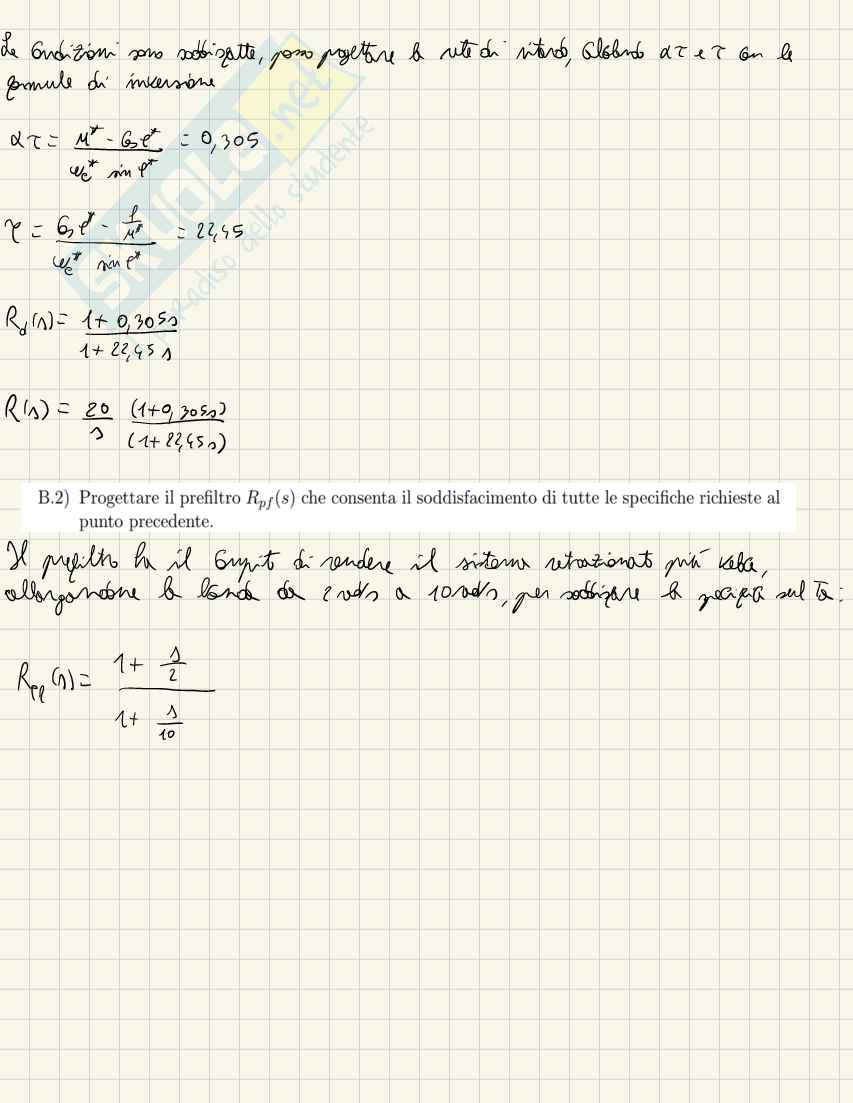 Le condizioni sono soddisfatte, posso progettare la rete di ritardo, calcolando ατ e τ con le
formule di inversione
ατ = (M* - cosφ*) / (ωc* sin φ*) = 0,305
τ = (cosφ* - 1/M*) / (ωc* sin φ*) = 22,45
Rd(s) = (1 + 0,305s) / (1 + 22,45 s)
R(s) = 20/s (1+0,305s) / (1+22,45s)
B.2) Progettare il prefiltro Rpf(s) che consenta il soddisfacimento di tutte le specifiche richieste al
punto precedente.
Il prefiltro ha il compito di rendere il sistema retroazionato più veloce,
allargandone la banda da 2 rad/s a 10 rad/s, per soddisfare la specifica sul Ta:
Rpf(s) = (1 + s/2) / (1 + s/10)
SKUOLA.net
paradiso dello studente